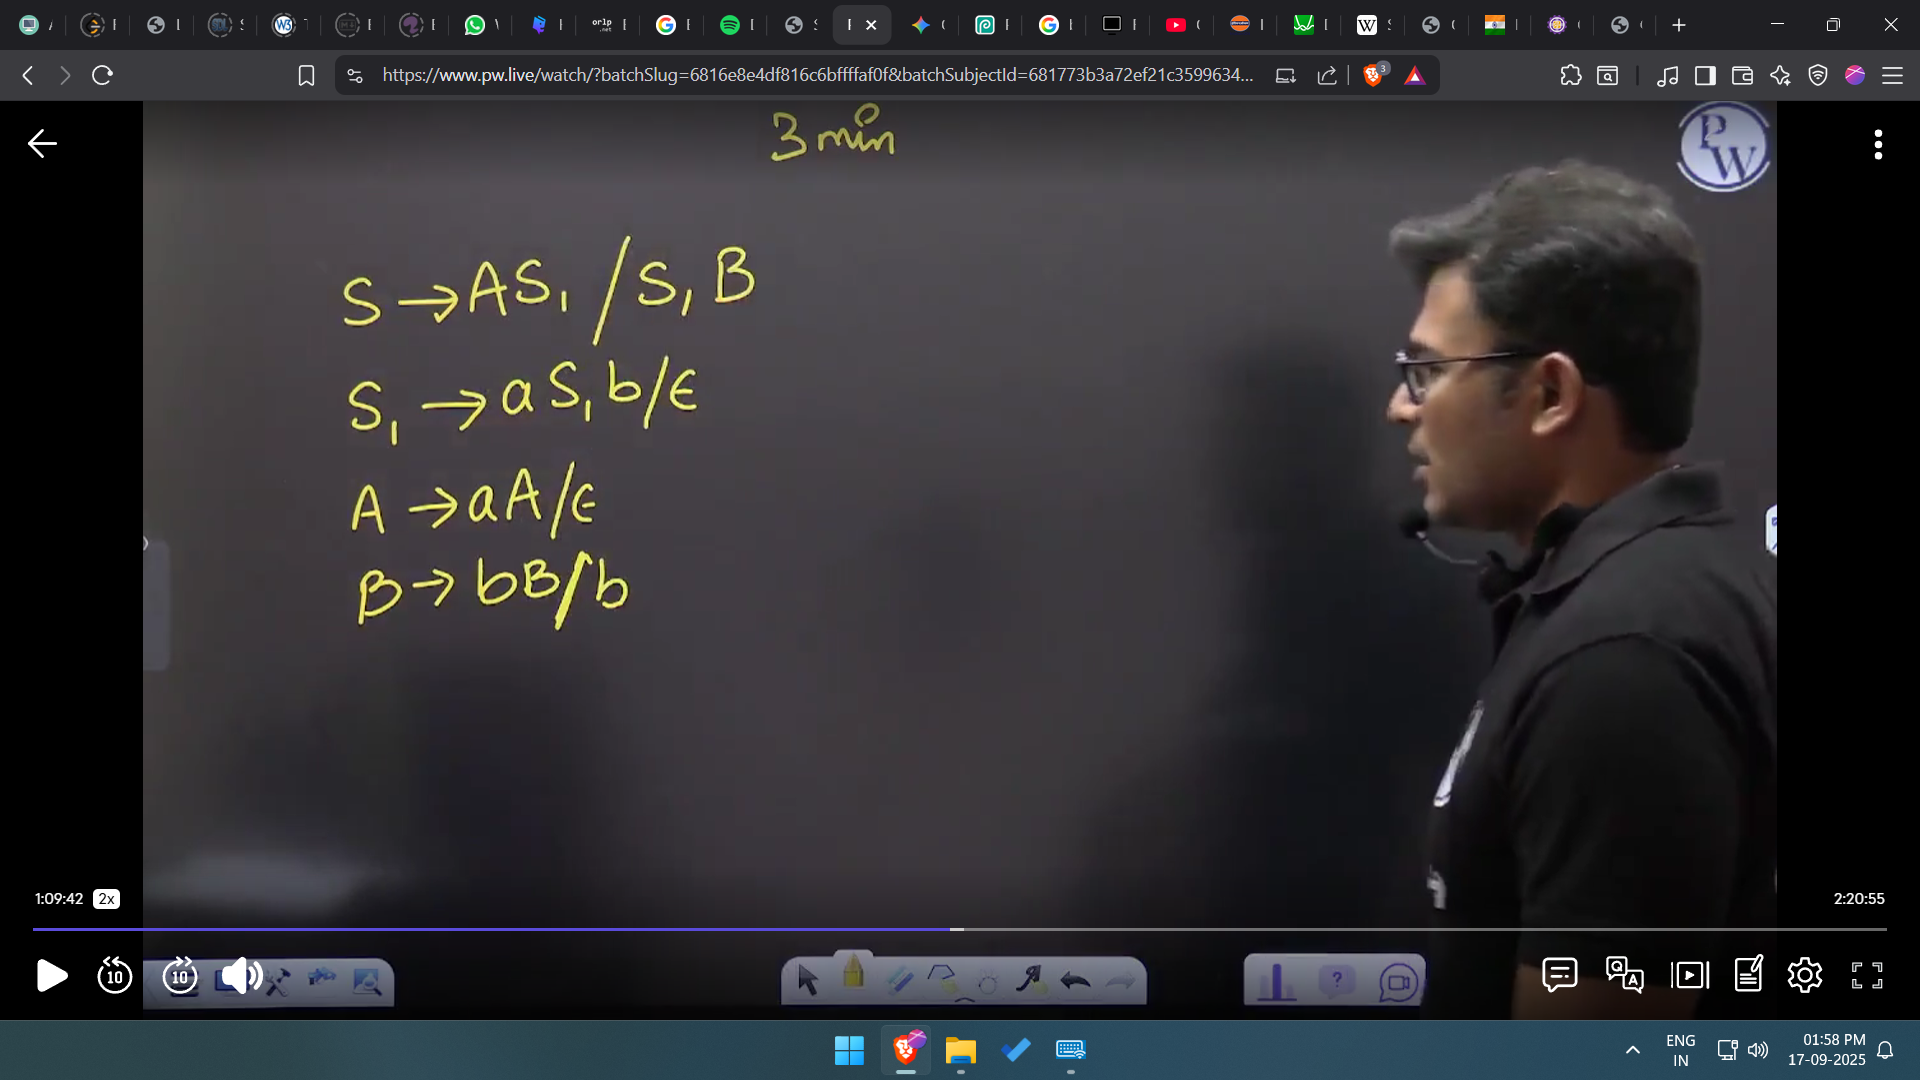 https://www.pw.live/watch/?batchSlug=6816e8e4df816c6bffffaf0f&batchSubjectId=681773b3a72ef21c3599634...
3
3 min
PW
S → AS₁ / S₁ B
S₁ → a S₁ b / ϵ
A → aA / ϵ
B → bB / b
1:09:42 2x
2:20:55
10 10
Q A
ENG
IN
01:58 PM
17-09-2025